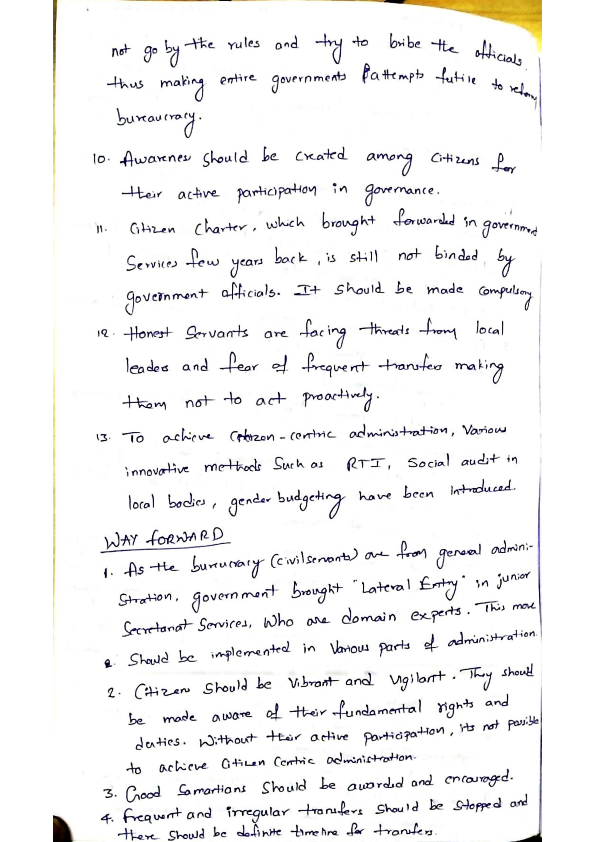 not go by the rules and try to bribe the officials.
thus making entire governments attempts futile to reform
bureaucracy.
10. Awarenes should be created among Citizens for
their active participation in governance.
11. Citizen Charter, which brought forwarded in government
Services few years back, is still not binded by
government officials. It should be made compulsory
12. Honest Servants are facing threats from local
leaders and fear of frequent transfers making
them not to act proactively.
13. To achieve citizen-centric administration, Various
innovative methods Such as RTI, Social audit in
local bodies, gender budgeting have been Introduced.
WAY FORWARD
1. As the bureucracy (civil servants) are from general admini-
stration, government brought "Lateral Entry" in junior
Secretariat Services, Who are domain experts. This more
2. Should be implemented in Various parts of administration.
2. Citizens Should be Vibrant and Vigilant. They should
be made aware of their fundamental rights and
duties. Without their active participation, its not possible
to achieve Citizen Centric administration.
3. Good Samartians Should be awarded and encouraged.
4. Frequent and irregular transfers Should be Stopped and
there Should be definite timeline for transfers.